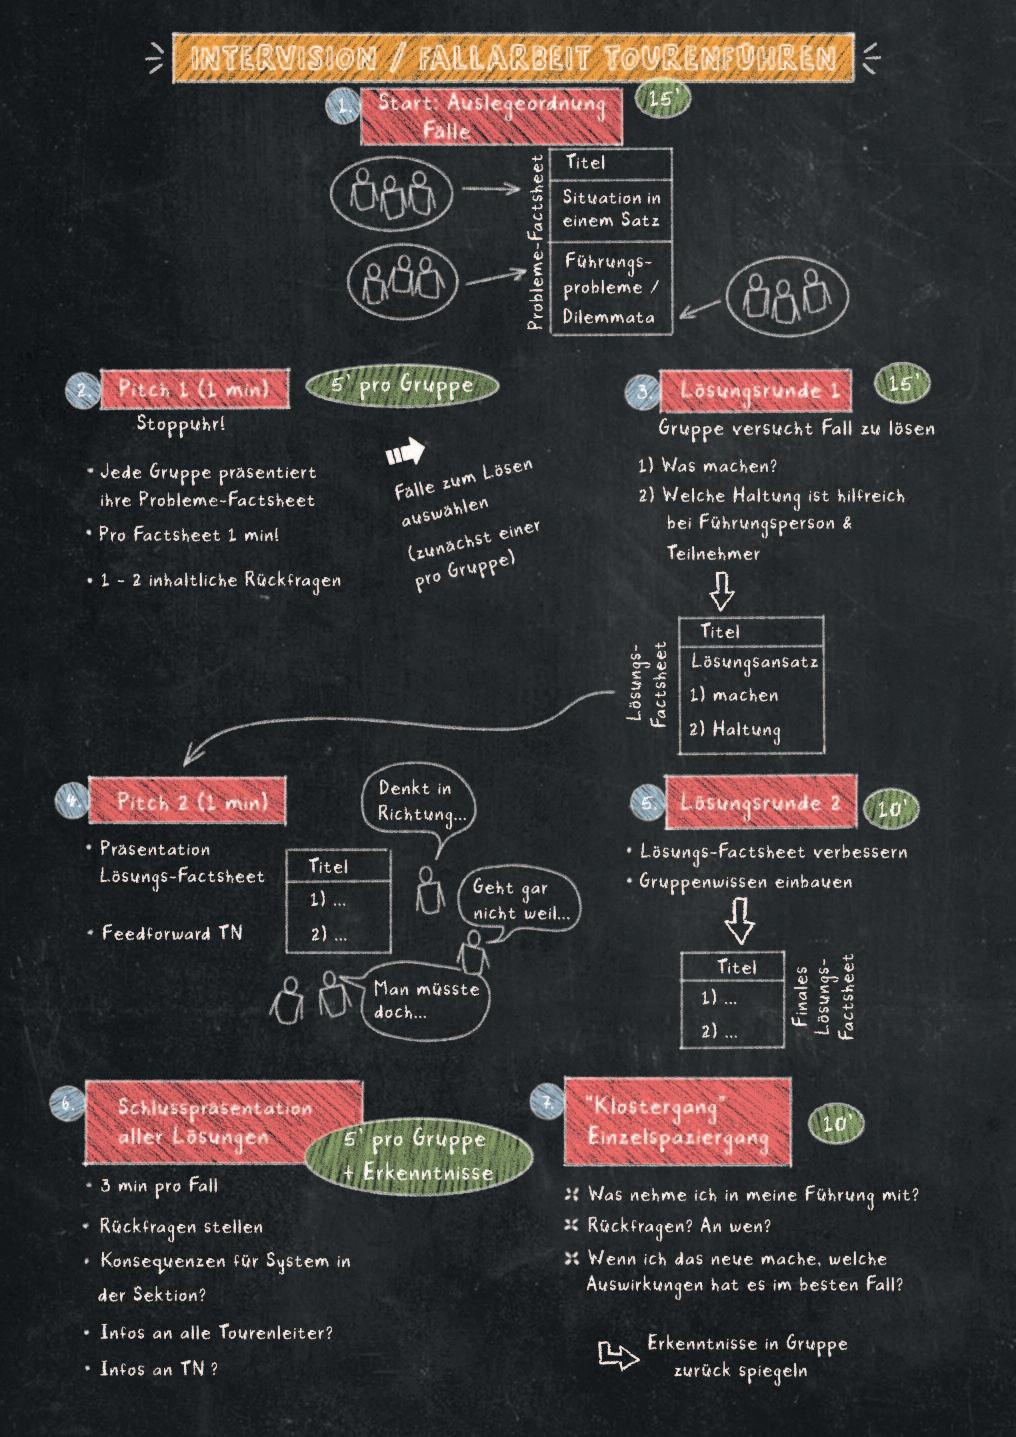 INTERVISION / FALLARBEIT TOURENFÜHREN
1.
Start: Auslegeordnung
Fälle
15'
Probleme-Factsheet
Titel
Situation in
einem Satz
Führungs-
probleme /
Dilemmata
2.
Pitch 1 (1 min)
5' pro Gruppe
Stoppuhr!
• Jede Gruppe präsentiert
ihre Probleme-Factsheet
• Pro Factsheet 1 min!
• 1 - 2 inhaltliche Rückfragen
Fälle zum Lösen
auswählen
(zunächst einer
pro Gruppe)
3.
Lösungsrunde 1
15'
Gruppe versucht Fall zu lösen
1) Was machen?
2) Welche Haltung ist hilfreich
bei Führungsperson &
Teilnehmer
Lösungs-
Factsheet
Titel
Lösungsansatz
1) machen
2) Haltung
4.
Pitch 2 (1 min)
• Präsentation
Lösungs-Factsheet
• Feedforward TN
Titel
1) ...
2) ...
Denkt in
Richtung...
Geht gar
nicht weil...
Man müsste
doch...
5.
Lösungsrunde 2
10'
• Lösungs-Factsheet verbessern
• Gruppenwissen einbauen
Titel
1) ...
2) ...
Finales
Lösungs-
Factsheet
6.
Schlusspräsentation
aller Lösungen
5' pro Gruppe
+ Erkenntnisse
• 3 min pro Fall
• Rückfragen stellen
• Konsequenzen für System in
der Sektion?
• Infos an alle Tourenleiter?
• Infos an TN ?
7.
"Klostergang"
Einzelspaziergang
10'
Was nehme ich in meine Führung mit?
Rückfragen? An wen?
Wenn ich das neue mache, welche
Auswirkungen hat es im besten Fall?
Erkenntnisse in Gruppe
zurück spiegeln